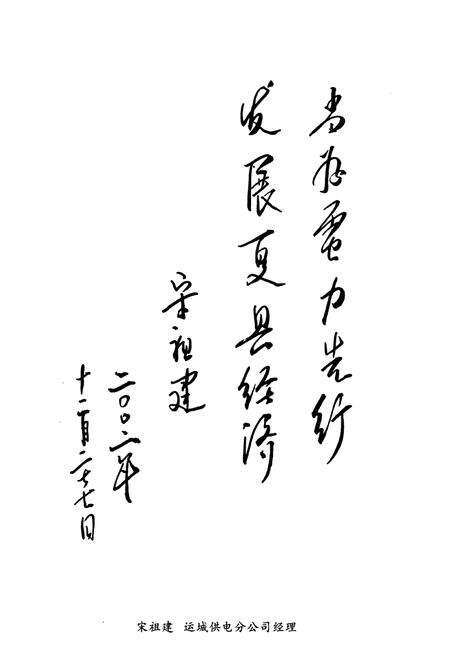 当好電力先行
发展夏县经济
宋祖建
二〇〇二年
十一月二十七日
宋祖建 运城供电分公司经理